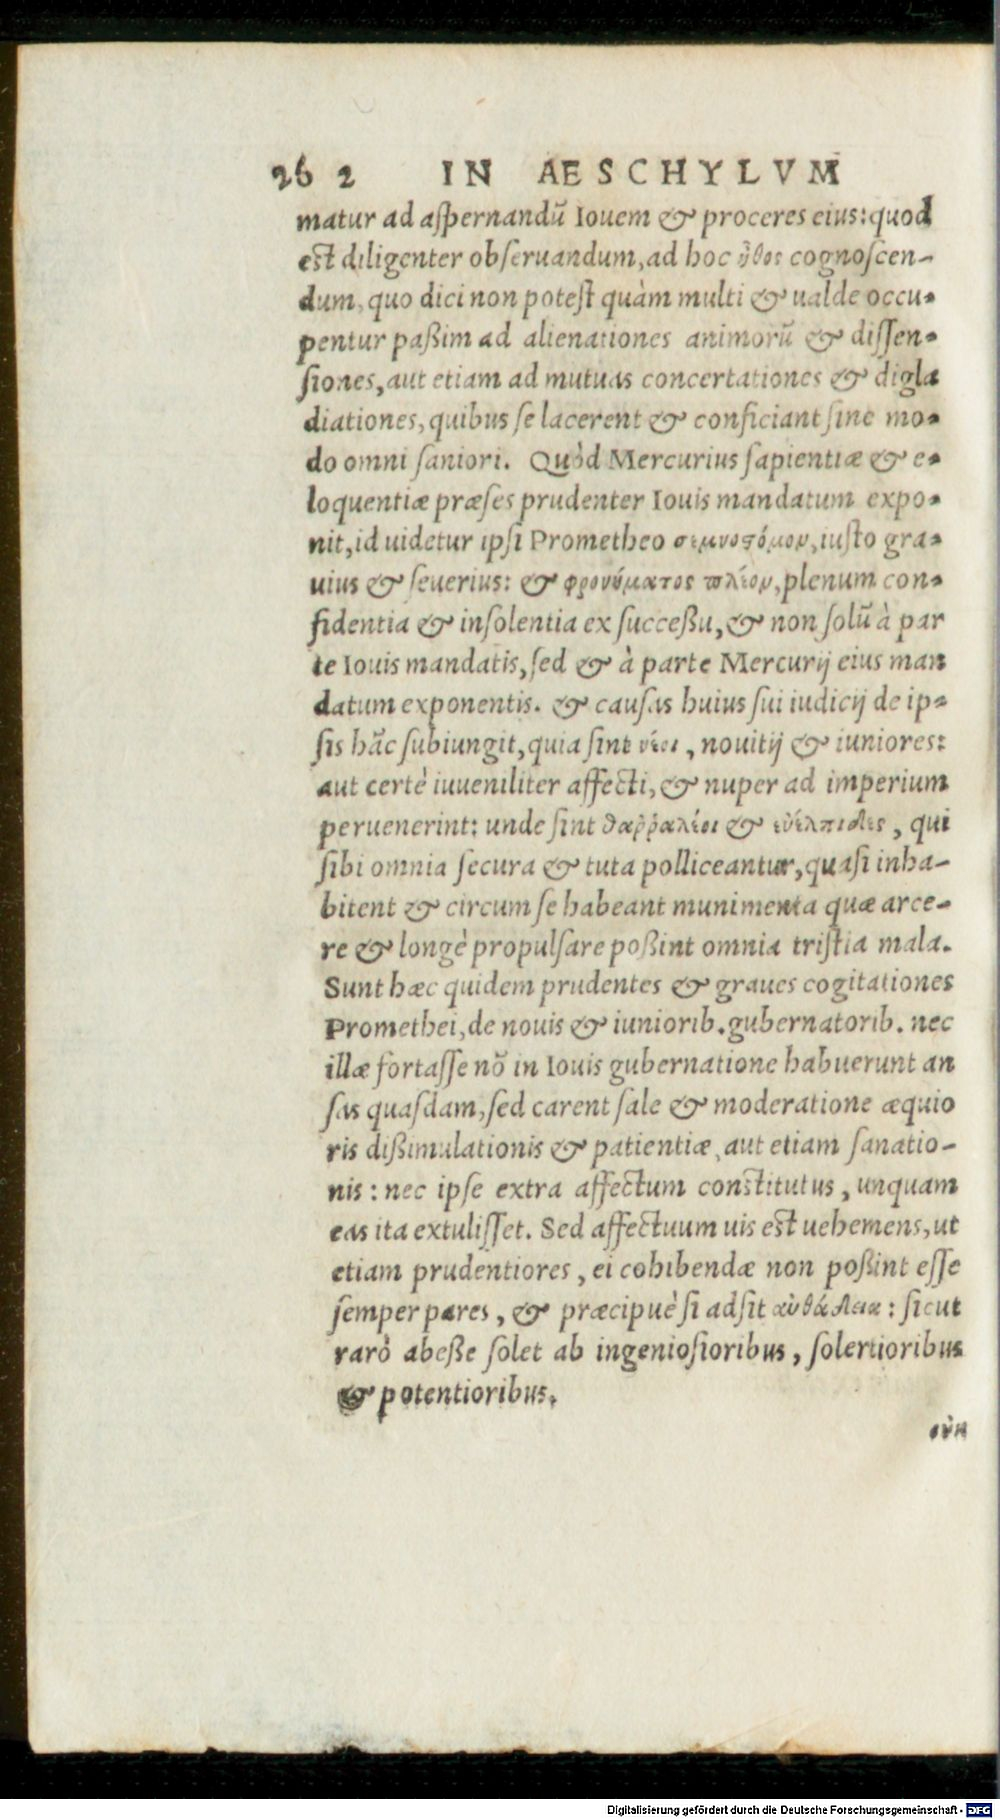 262 IN AESCHYLVM
matur ad aſpernandũ Iouem & proceres eius: quod
est diligenter obſeruandum, ad hoc ἦθος cognoſcen-
dum, quo dici non poteſt quàm multi & ualde occu-
pentur paßim ad alienationes animorũ & diſſen-
ſiones, aut etiam ad mutuas concertationes & digla
diationes, quibus ſe lacerent & conficiant ſine mo-
do omni ſaniori. Quòd Mercurius ſapientiæ & e-
loquentiæ præſes prudenter Iouis mandatum expo-
nit, id uidetur ipſi Prometheo σεμνοστόμου, iuſto gra-
uius & ſeuerius: & φρονήματος πλέον, plenum con-
fidentia & inſolentia ex ſucceßu, & non ſolũ à par
te Iouis mandatis, ſed & à parte Mercurij eius man
datum exponentis. & cauſas huius ſui iudicij de ip-
ſis hãc ſubiungit, quia ſint νέοι, nouitij & iuniores:
aut certè iuueniliter affecti, & nuper ad imperium
peruenerint: unde ſint θαῤῥαλέοι & εὐέλπιδες, qui
ſibi omnia ſecura & tuta polliceantur, quaſi inha-
bitent & circum ſe habeant munimenta quæ arce-
re & longè propulſare poßint omnia triſtia mala.
Sunt hæc quidem prudentes & graues cogitationes
Promethei, de nouis & iuniorib. gubernatorib. nec
illæ fortaſſe nõ in Iouis gubernatione habuerunt an
ſas quaſdam, ſed carent ſale & moderatione æquio
ris dißimulationis & patientiæ, aut etiam ſanatio-
nis: nec ipſe extra affectum constitutus, unquam
eas ita extuliſſet. Sed affectuum uis est uehemens, ut
etiam prudentiores, ei cohibendæ non poßint eſſe
ſemper pares, & præcipuè ſi adſit αὐθάδεια: ſicut
rarò abeße ſolet ab ingenioſioribus, ſolertioribus
& potentioribus.
Digitalisierung gefördert durch die Deutsche Forschungsgemeinschaft - DFG